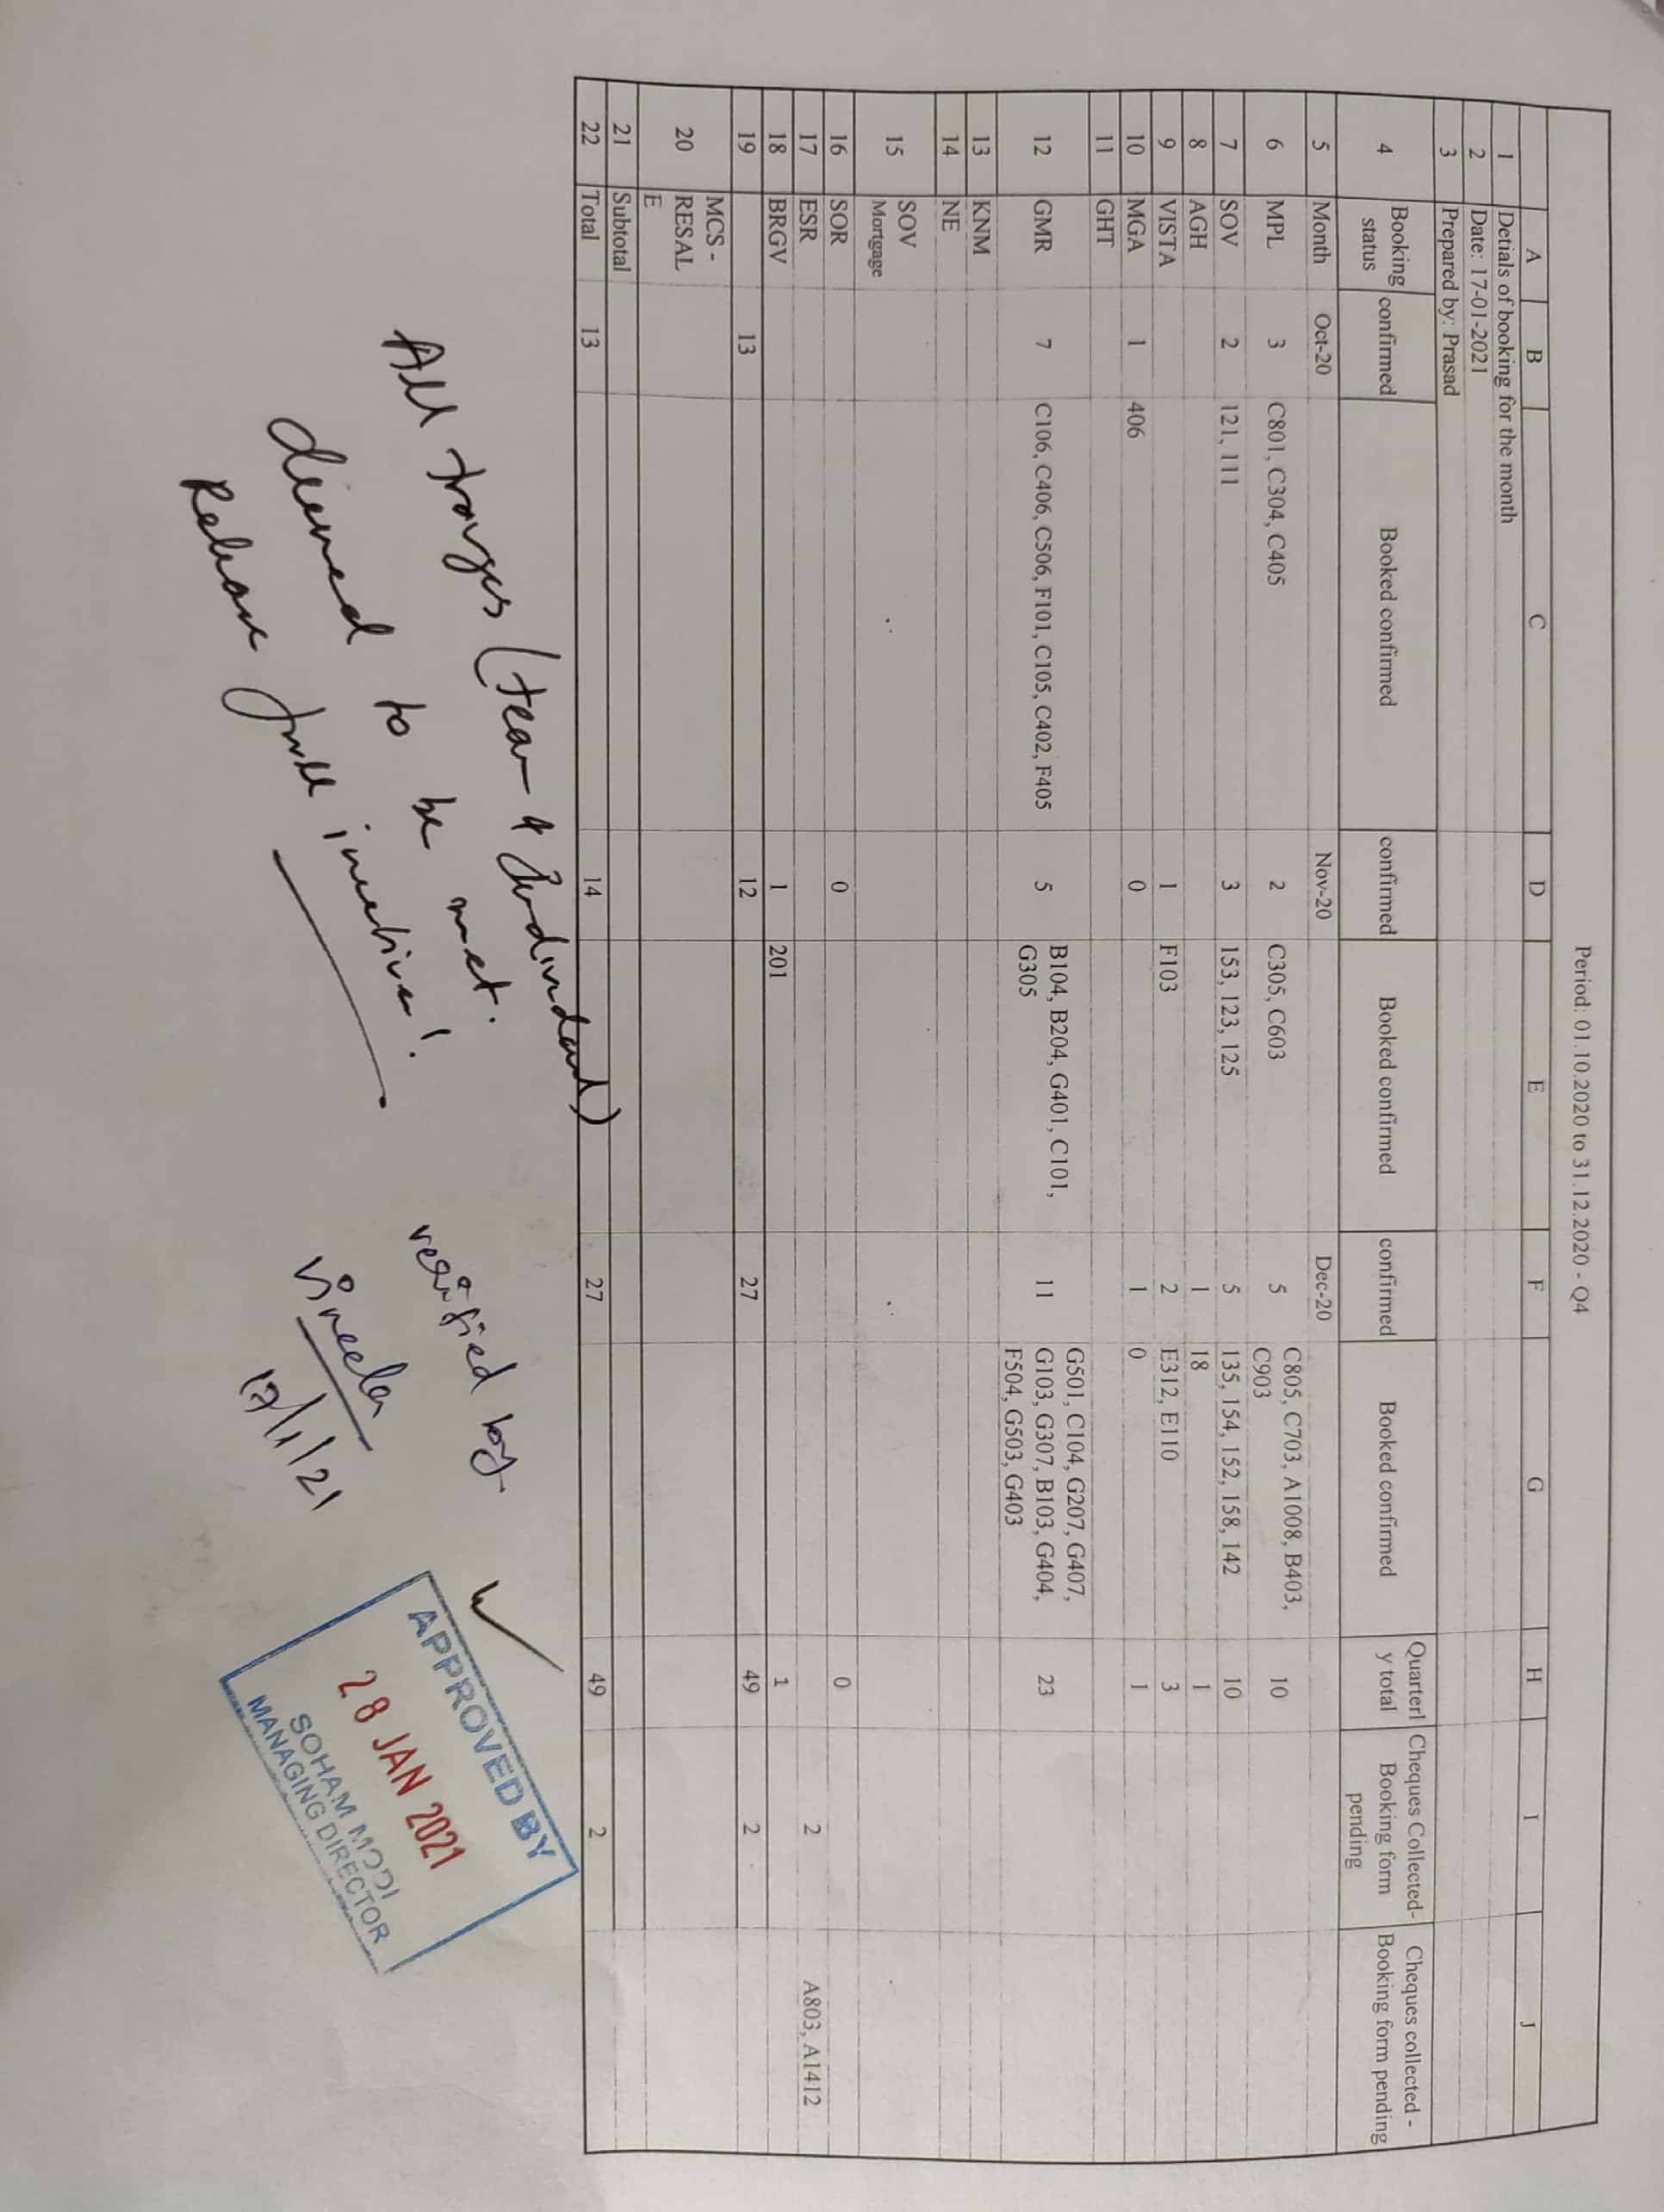 Period: 01.10.2020 to 31.12.2020 - Q4
A B C D E F G H I J
1 Detials of booking for the month
2 Date: 17-01-2021
3 Prepared by: Prasad
4 Booking status confirmed Booked confirmed confirmed Booked confirmed confirmed Booked confirmed Quarterl y total Cheques Collected- Booking form pending Cheques collected - Booking form pending
5 Month Oct-20 Nov-20 Dec-20
6 MPL 3 C801, C304, C405 2 C305, C603 5 C805, C703, A1008, B403, C903 10
7 SOV 2 121, 111 3 153, 123, 125 5 135, 154, 152, 158, 142 10
8 AGH 1 18 1
9 VISTA 1 F103 2 E312, E110 3
10 MGA 1 406 0 1 0 1
11 GHT
12 GMR 7 C106, C406, C506, F101, C105, C402, F405 5 B104, B204, G401, C101, G305 11 G501, C104, G207, G407, G103, G307, B103, G404, F504, G503, G403 23
13 KNM
14 NE
15 SOV Mortgage
16 SOR 0 0
17 ESR 2 A803, A1412
18 BRGV 1 201 1
19 13 12 27 49 2
20 MCS - RESAL E
21 Subtotal
22 Total 13 14 27 49 2
All (team &
deemed to be met.
Release full incentive!
verified by
Vineela
17/1/21
APPROVED BY
28 JAN 2021
SOHAM MODI
MANAGING DIRECTOR